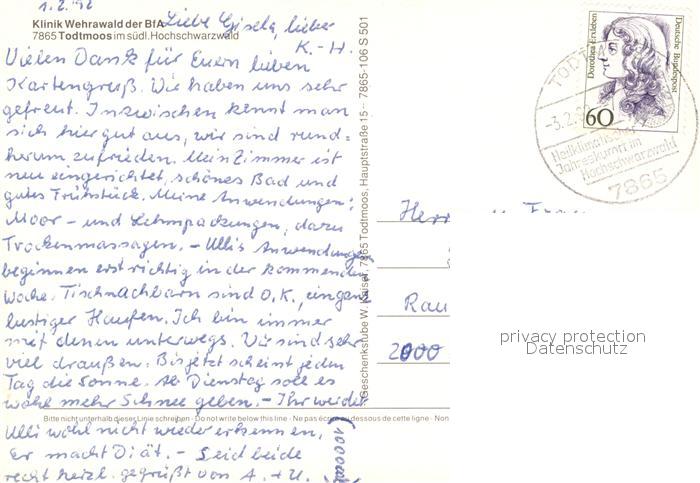 1.2.92
Klinik Wehrawald der BfA
7865 Todtmoos im südl. Hochschwarzwald
Liebe Gisela, lieber
K.-H.
Vielen Dank für Euern lieben
Kartengruß. Wir haben uns sehr
gefreut. Inzwischen kennt man
sich hier gut aus, wir sind rund-
herum zufrieden. Mein Zimmer ist
neu eingerichtet, schönes Bad und
gutes Frühstück. Meine Anwendungen:
Moor- und Lehmpackungen, dazu
Trockenmassagen. - Ulli's Anwendungen
beginnen erst richtig in der kommenden
Woche. Tischnachbarn sind O.K., ein ganz
lustiger Haufen. Ich bin immer
mit denen unterwegs. Wir sind sehr
viel draußen. Bis jetzt scheint jeden
Tag die Sonne. Ab Dienstag soll es
wohl mehr Schnee geben. - Ihr werdet
Bitte nicht unterhalb dieser Linie schreiben · Do not write below this line · Ne pas écrire au dessous de cette ligne · Non
Ulli wohl nicht wieder erkennen,
Er macht Diät. - Seid beide
recht herzl. gegrüßt von A. + U.
(1000
Geschenkstube W. Kaiser, 7865 Todtmoos, Hauptstraße 15 - 7865-106 S 501
Dorothea Erxleben
Deutsche Bundespost
60
TODT
-3.2.9
Heilklimatischer
Jahreskurort im
Hochschwarzwald
7865
Herr u Frau
Rau
2000
privacy protection
Datenschutz